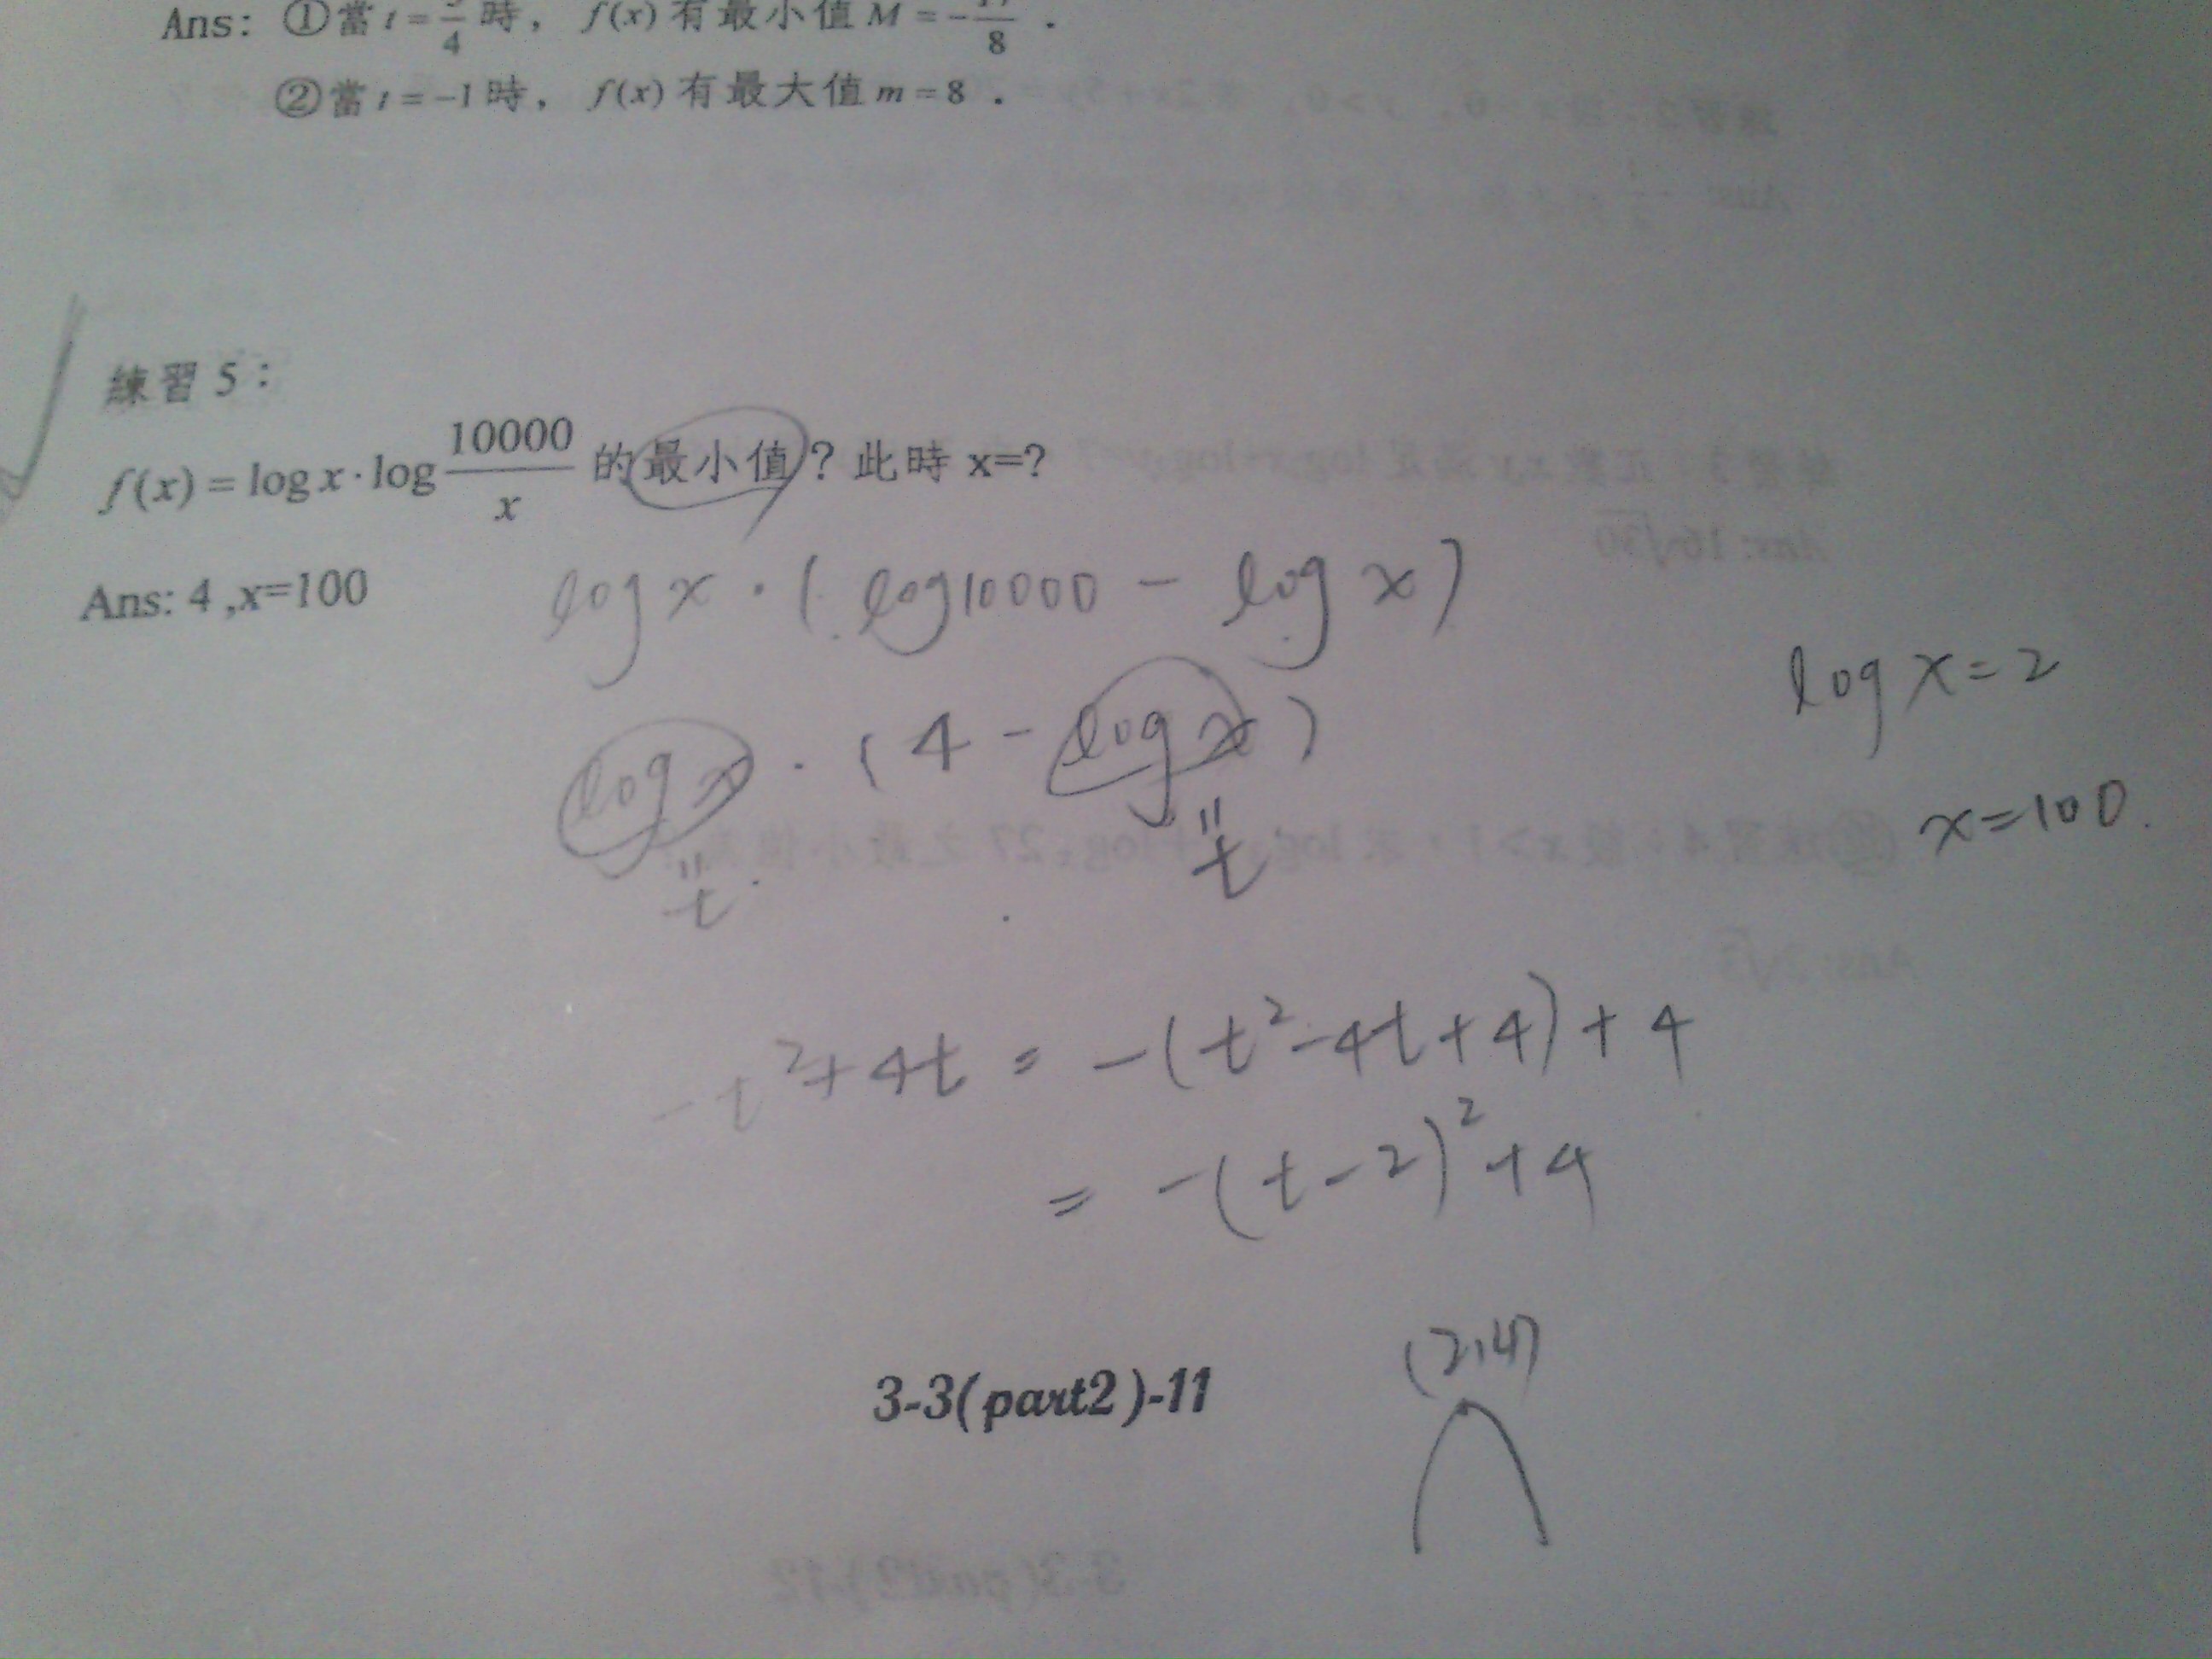 Ans: ①當 t = 5/4 時, f(x) 有最小值 M = -17/8 .
②當 t = -1 時, f(x) 有最大值 m = 8 .
練習 5：
f(x) = log x · log 10000/x 的最小值？此時 x=?
Ans: 4 ,x=100
log x · ( log 10000 - log x )
log x · ( 4 - log x )
log x = 2
x = 100.
= t
= t
-t² + 4t = -(t² - 4t + 4) + 4
= -(t - 2)² + 4
(2,4)
3-3(part2)-11